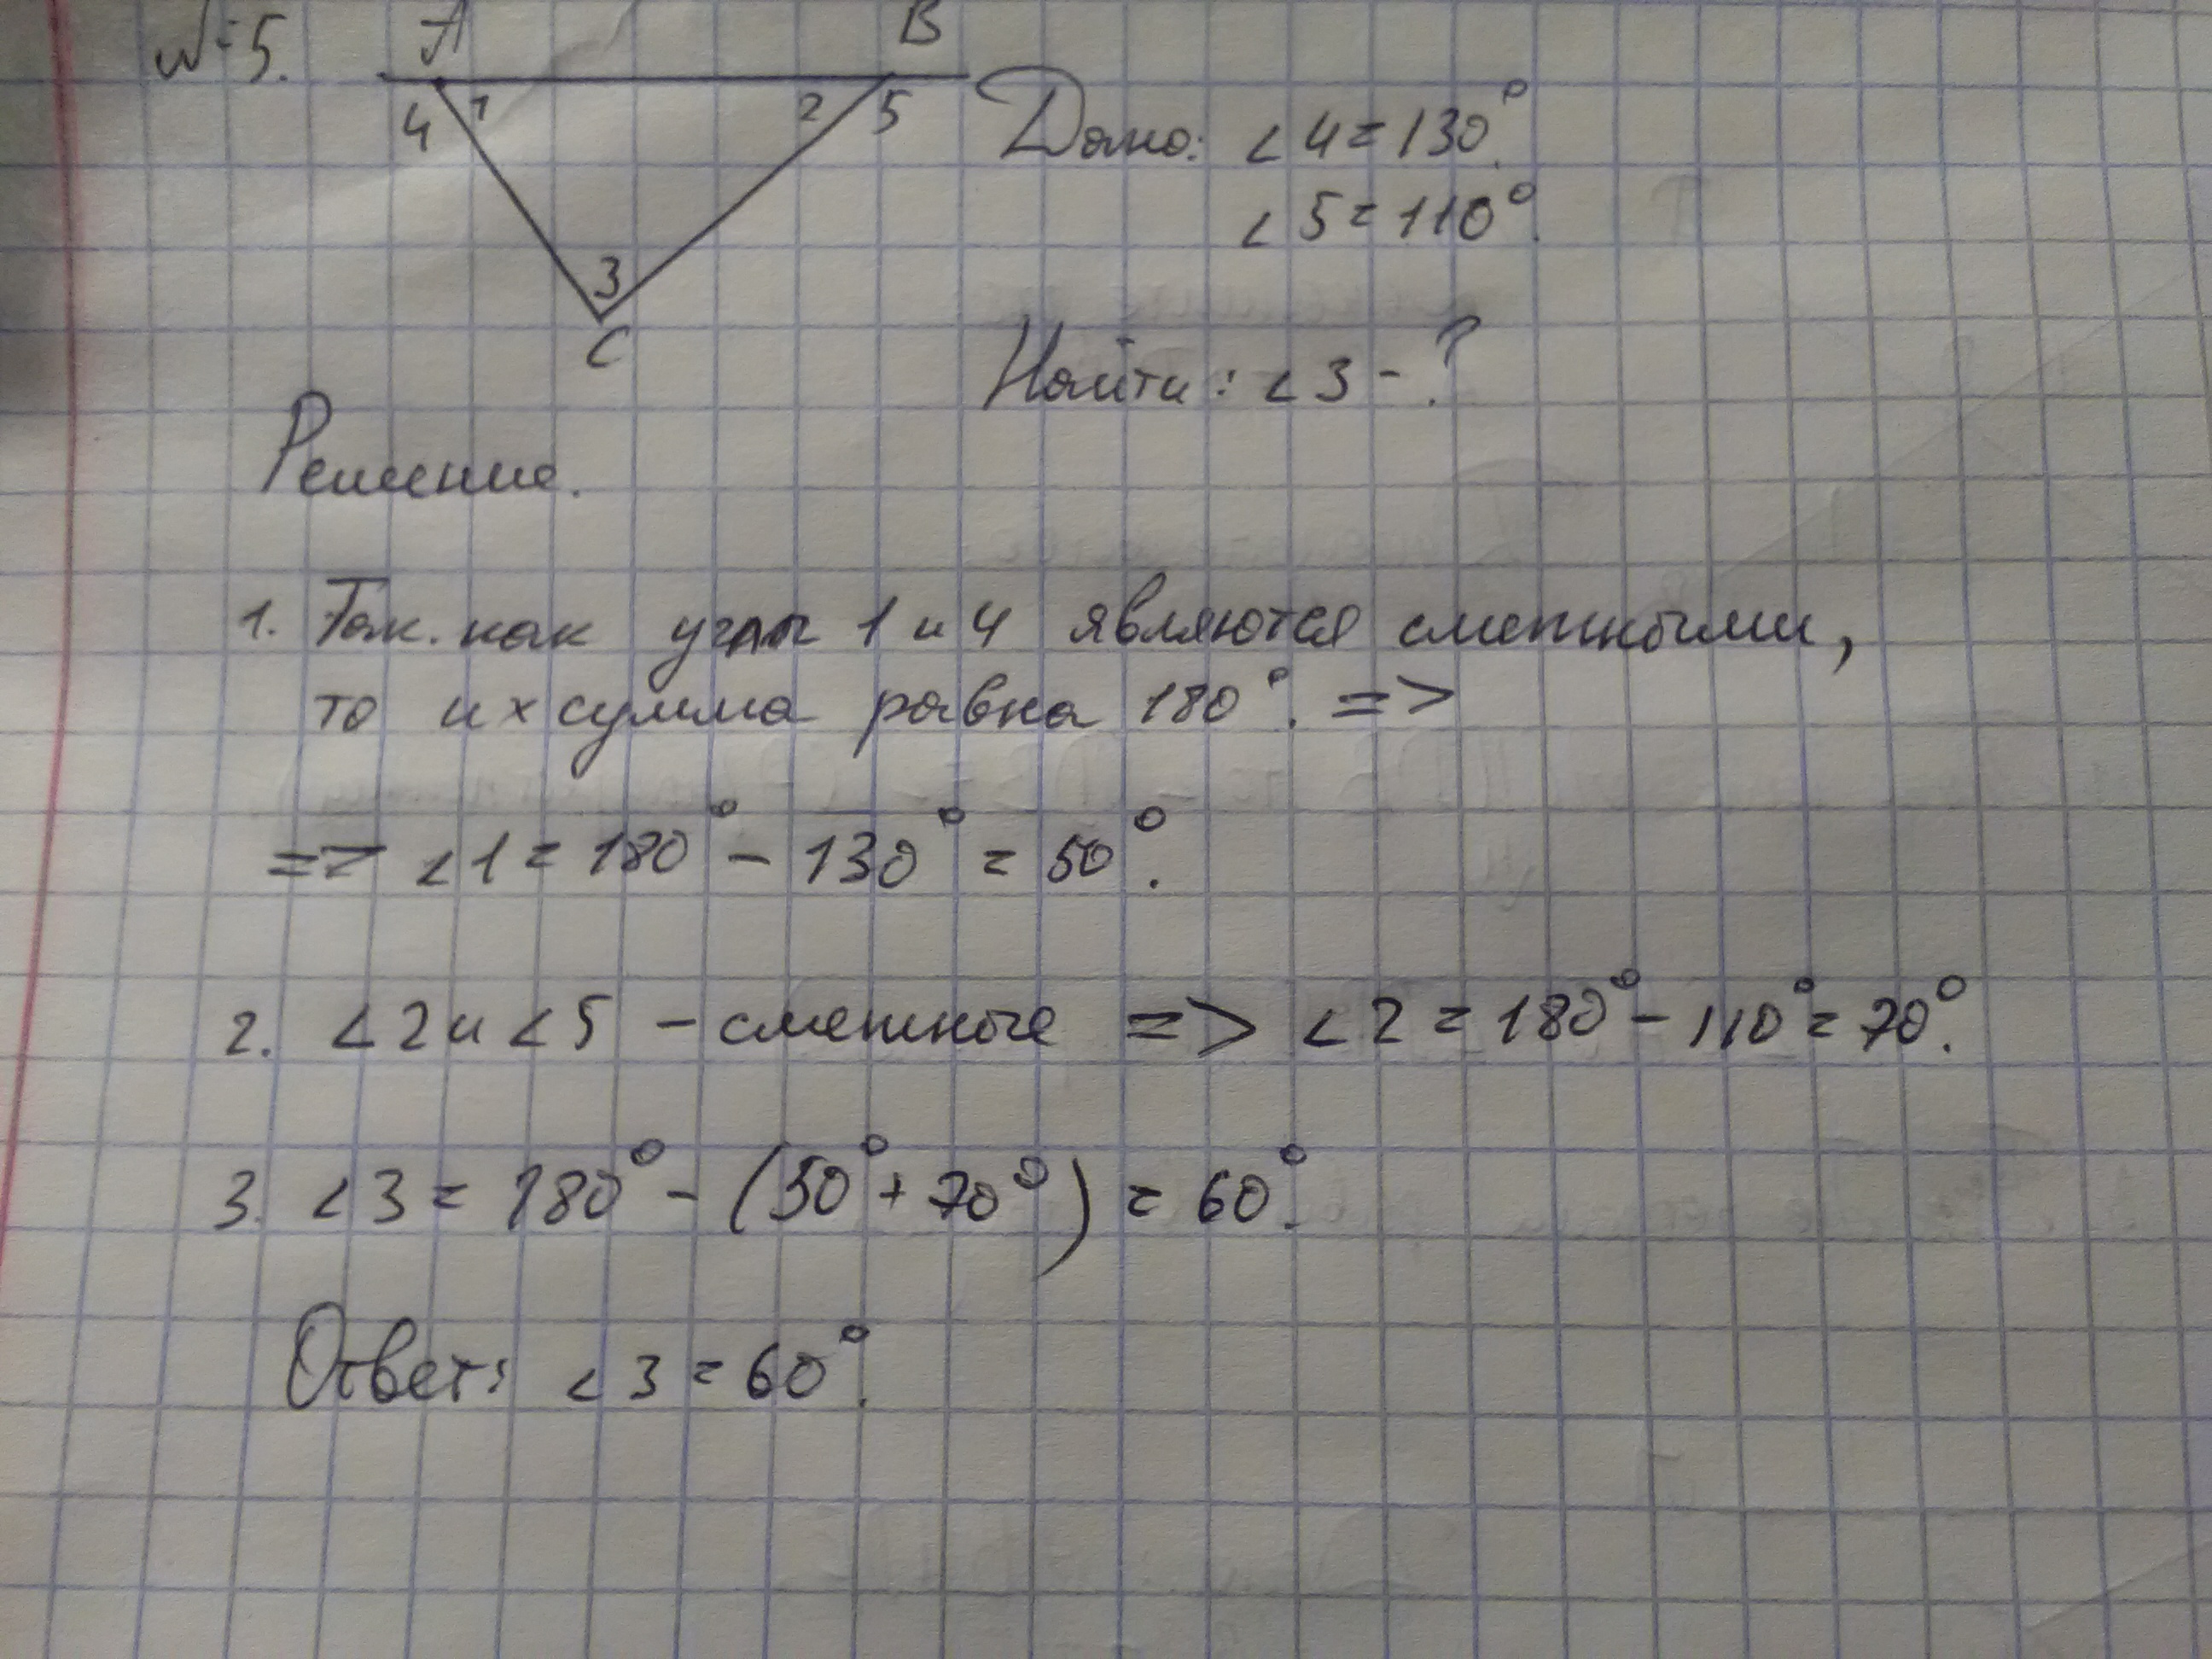 №5.
A B
4 1 2 5
3
C
Дано: ∠4=130°.
∠5=110°.
Найти: ∠3-?
Решение.
1. Так. как углы 1 и 4 являются смежными,
то их сумма равна 180°. =>
=> ∠1=180°-130°=50°.
2. ∠2 и ∠5 - смежные => ∠2=180°-110°=70°.
3. ∠3=180°-(50°+70°)=60°.
Ответ: ∠3=60°.